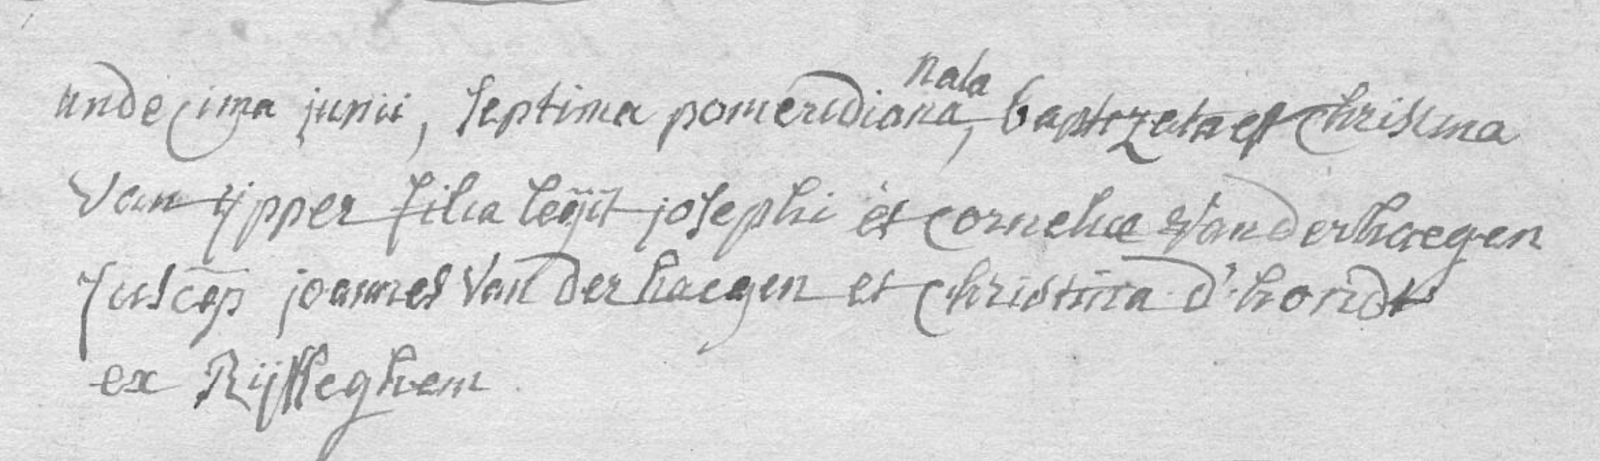 nata
undecima junii, septima pomeridiana, baptizata est Christina
Van ijpper filia legit josephi et Corneliæ Vanderhaegen
suscep joannes Van der haegen et Christina d'hondt
ex Rijsseghem